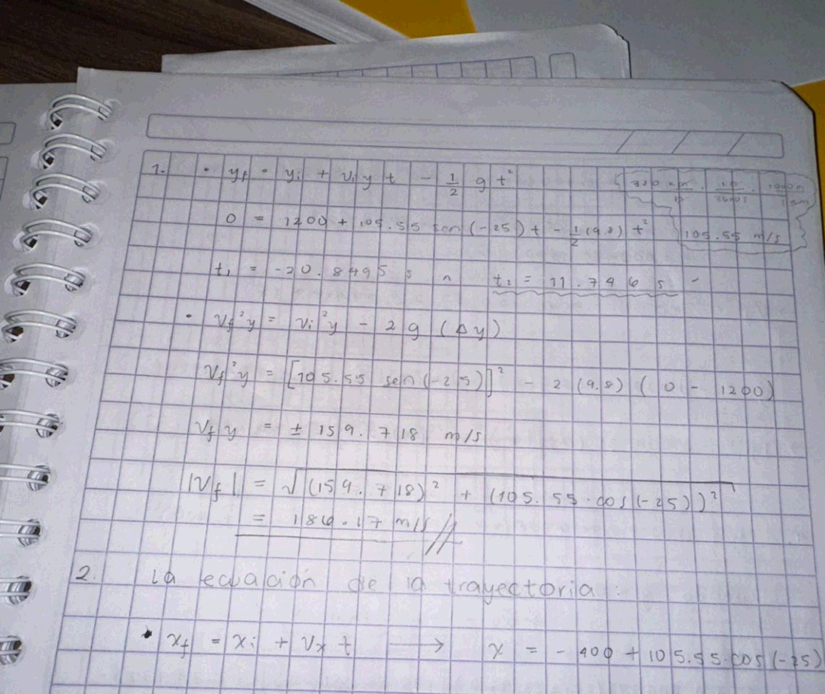 1. • yf = yi + viy t - 1/2 g t²
0 = 1200 + 105.55 sen(-25) t - 1/2 (9.8) t²
105.55 m/s
t₁ = -20.8495 s ∧ t₂ = 11.746 s
• vf²y = vi²y - 2g (Δy)
vf²y = [105.55 sen(-25)]² - 2(9.8)(0 - 1200)
vf y = ± 159.718 m/s
|vf| = √(159.718)² + (105.55·cos(-25))²
= 186.17 m/s
2. la ecuación de la trayectoria:
• xf = xi + vx t → x = -400 + 105.55·cos(-25)